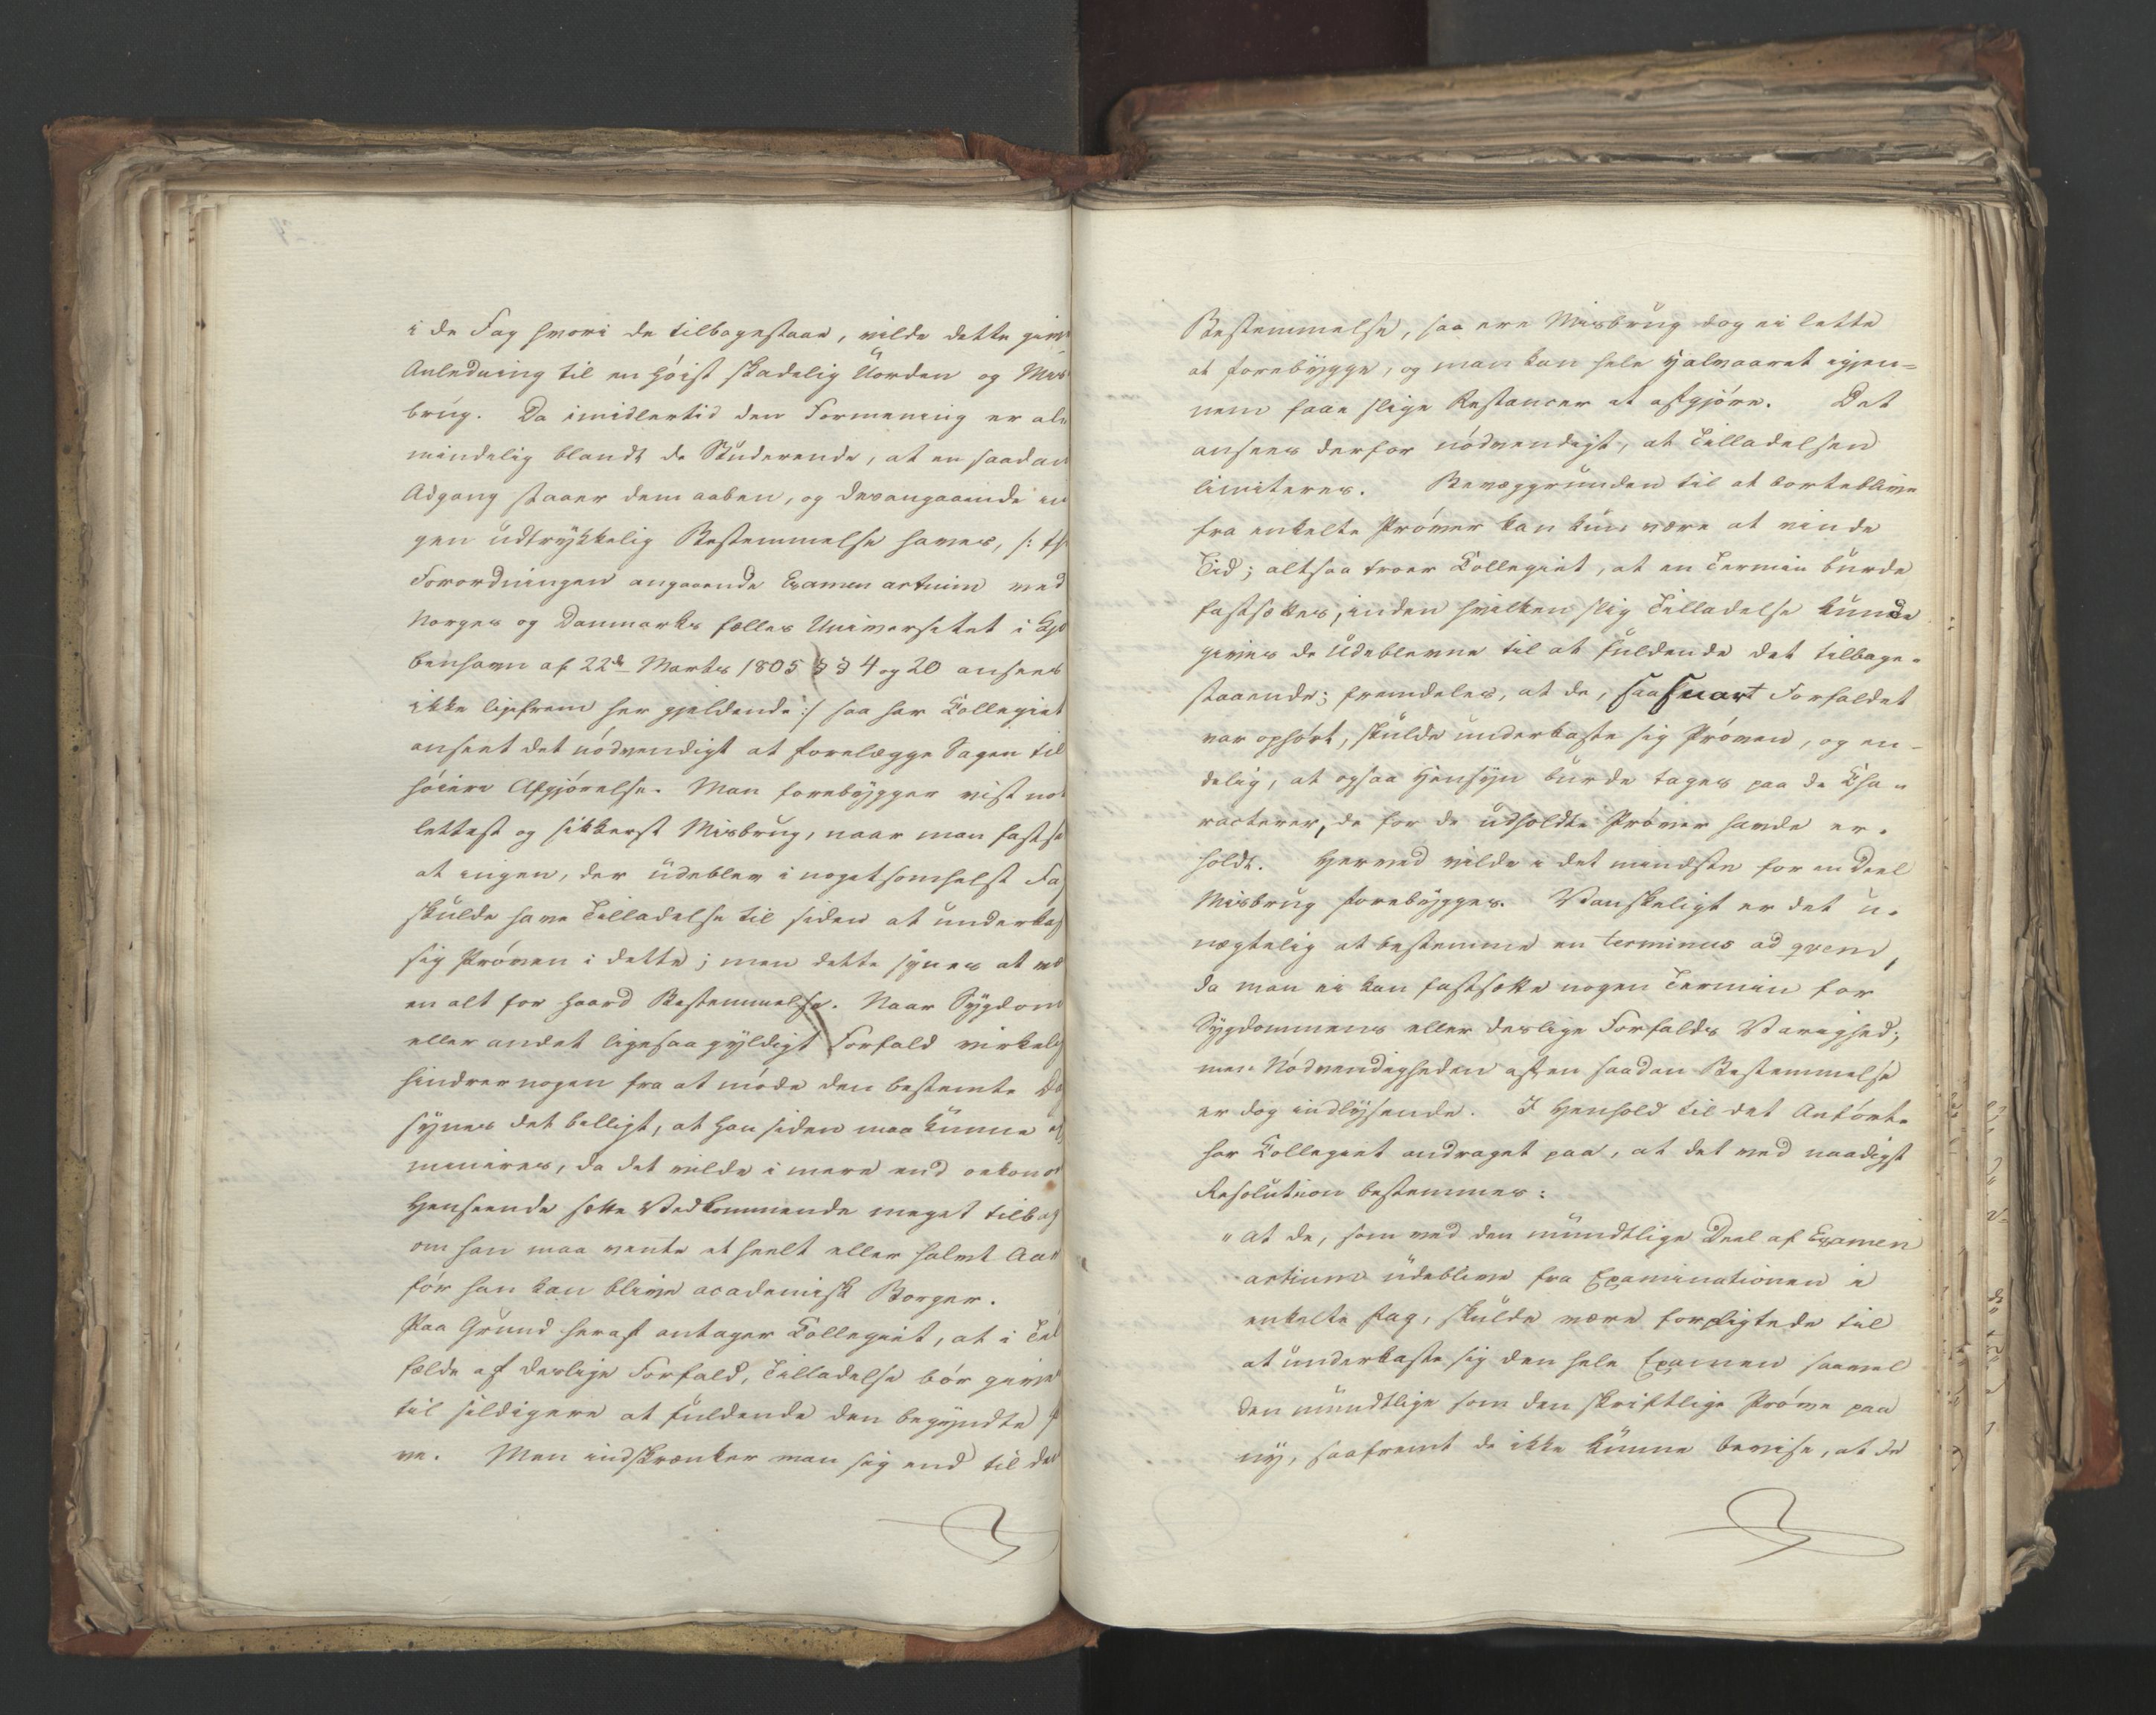 i de Fag hvori de tilbagestaae, vilde dette give
Anledning til en høist skadelig Uorden og Mis
brug. Da imidlertid den Formening er alm
mindelig blandt de Studerende, at en saadan
Adgang staaer dem aaben, og desangaaende in
gen udtrykkelig Bestemmelse haves, /:
Forordningen angaaende Examen artium ved
Norges og Danmarks fælles Universitet i Kjø
benhavn af 22de Marts 1805 § § 4 og 20 ansees
ikke ligefrem her gjeldende :/ saa har Collegiet
anseet det nødvendigt at forelægge Sagen til
høiere Afgjørelse. Man forebygger vist nok
lettest og sikkerst Misbrug, naar man fastsæ
at ingen, der udeblev i nogetsomhelst Fag
skulde have Tilladelse til siden at underkas
sig Prøven i dette; men dette synes at væ
en alt for haard Bestemmelse. Naar Sygdom
eller andet ligesaa gyldigt Forfald virkelig
hindrer nogen fra at møde den bestemte Dag
synes det billigt, at han siden maa kunne ex
mineres, da det vilde i mere end oekono
Henseende sætte Vedkommende meget tilbag
om han maa vente et heelt eller halvt Aar
før han kan blive academisk Borger.
Paa Grund heraf antager Collegiet, at i Til
fælde af deslige Forfald, Tilladelse bør give
til sildigere at fuldende den begyndte P
ve. Men indskrænker man sig end til den
Bestemmelse, saa ere Misbrug dog ei lette
at forebygge, og man kan hele Halvaaret igjen=
nem faae slige Restancer at afgjøre. Det
ansees derfor nødvendigt, at Tilladelsen
limiteres. Bevæggrunden til at borteblive
fra enkelte Prøver kan kun være at vinde
Tid; altsaa troer Collegiet, at en Termin burde
fastsættes, inden hvilken slig Tilladelse kunde
gives de Udeblevne til at fuldende det tilbage-
staaende; fremdeles, at de, saasnart Forfaldet
var ophørt, skulde underkaste sig Prøven, og en-
delig, at ogsaa Hensyn burde tages paa de Cha-
racterer, de for de udholdte Prøver havde er-
holdt. Herved vilde i det mindste for en Deel
Misbrug forebygges. Vanskeligt er det u-
nægtelig at bestemme en terminus ad qvem,
da man ei kan fastsætte nogen Termin for
Sygdommens eller deslige Forfalds Varighed;
men Nødvendigheden af en saadan Bestemmelse
er dog indlysende. I Henhold til det Anførte
har Collegiet andraget paa, at det ved naadigst
Resolution bestemmes:
"at de, som ved den mundtlige Deel af Examen
artium udeblive fra Examinationen i
enkelte Fag, skulde være forpligtede til
at underkaste sig den hele Examen saavel
den mundtlige som den skriftlige Prøve paa
ny, saafremt de ikke kunne bevise, at de